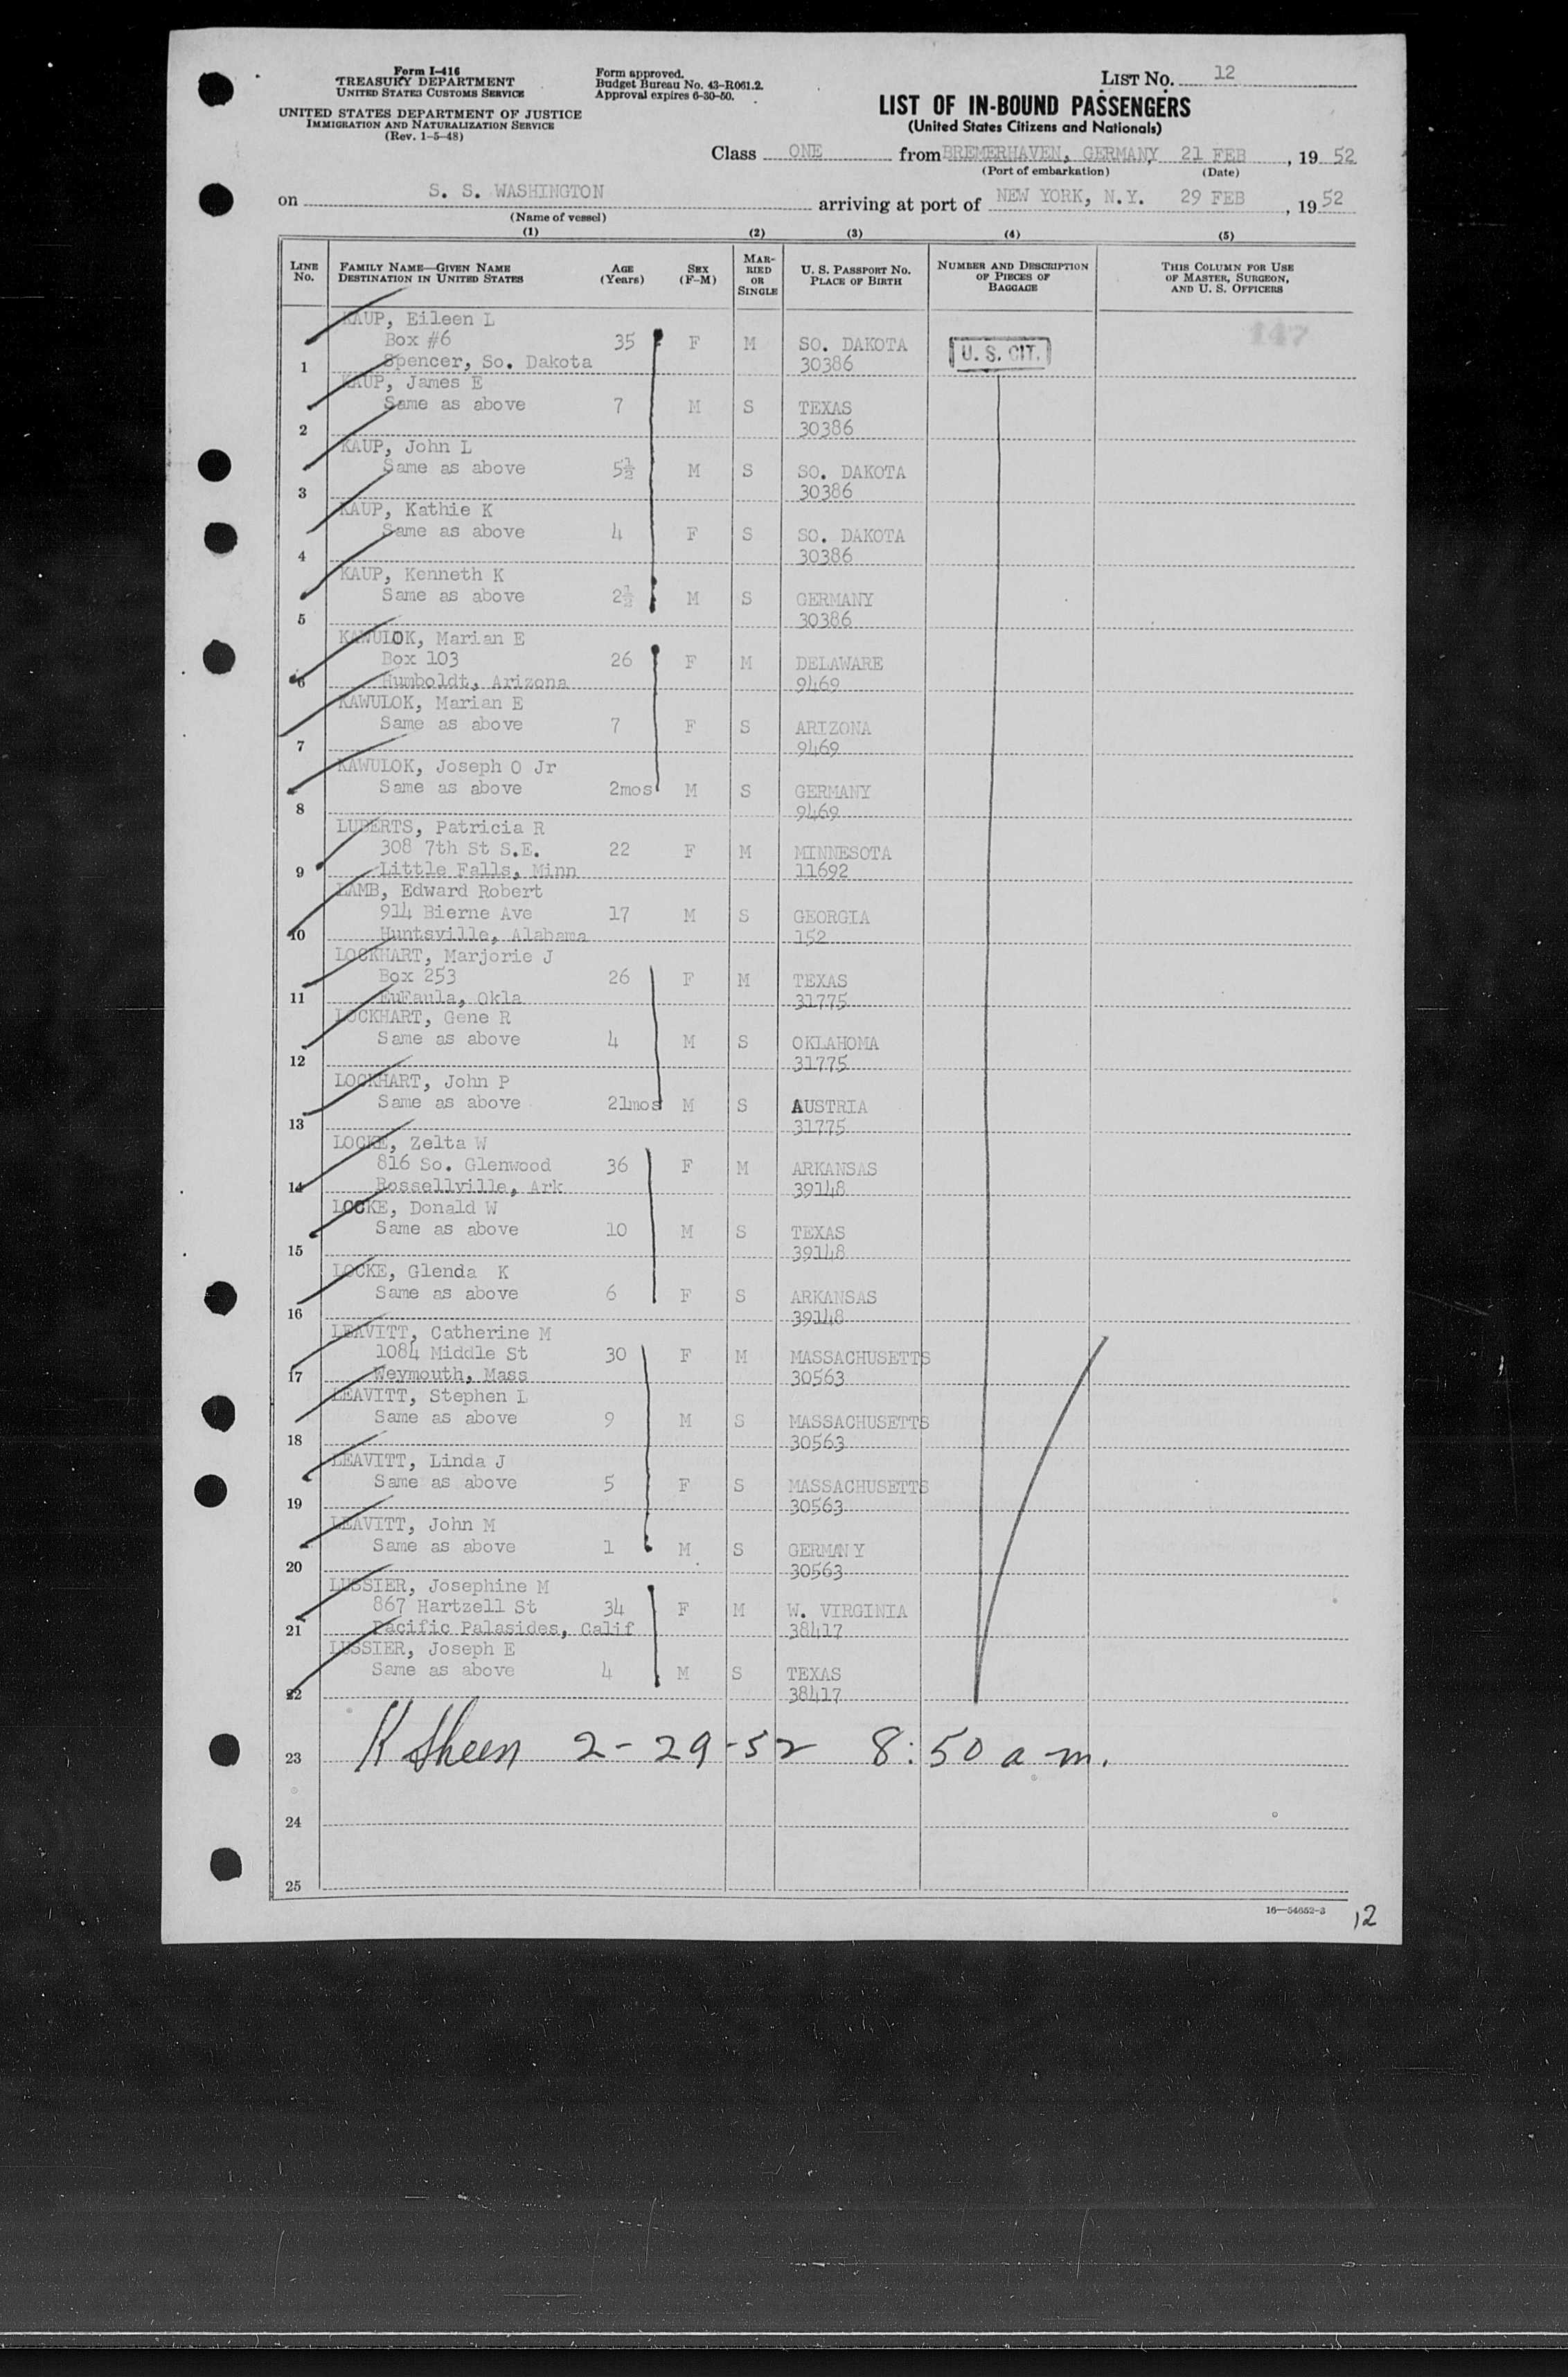 Form I-416
TREASURY DEPARTMENT
UNITED STATES CUSTOMS SERVICE
UNITED STATES DEPARTMENT OF JUSTICE
IMMIGRATION AND NATURALIZATION SERVICE
(Rev. 1-5-48)
Form approved.
Budget Bureau No. 43-R061.2.
Approval expires 6-30-50.
LIST No. 12
LIST OF IN-BOUND PASSENGERS
(United States Citizens and Nationals)
Class ONE from BREMERHAVEN, GERMANY 21 FEB, 19 52
(Port of embarkation) (Date)
on S. S. WASHINGTON arriving at port of NEW YORK, N.Y. 29 FEB, 19 52
(Name of vessel)
(1) (2) (3) (4) (5)
LINE No. FAMILY NAME—GIVEN NAME DESTINATION IN UNITED STATES AGE (Years) SEX (F-M) MARRIED OR SINGLE U. S. PASSPORT NO. PLACE OF BIRTH NUMBER AND DESCRIPTION OF PIECES OF BAGGAGE THIS COLUMN FOR USE OF MASTER, SURGEON, AND U. S. OFFICERS
KAUP, Eileen L 147
Box #6 35 F M SO. DAKOTA U. S. CIT.
1 Spencer, So. Dakota 30386
KAUP, James E
Same as above 7 M S TEXAS
2 30386
KAUP, John L
Same as above 5½ M S SO. DAKOTA
3 30386
KAUP, Kathie K
Same as above 4 F S SO. DAKOTA
4 30386
KAUP, Kenneth K
Same as above 2½ M S GERMANY
5 30386
KAWULOK, Marian E
Box 103 26 F M DELAWARE
6 Humboldt, Arizona 9469
KAWULOK, Marian E
Same as above 7 F S ARIZONA
7 9469
KAWULOK, Joseph O Jr
Same as above 2mos M S GERMANY
8 9469
LUBERTS, Patricia R
308 7th St S.E. 22 F M MINNESOTA
9 Little Falls, Minn 11692
LAMB, Edward Robert
914 Bierne Ave 17 M S GEORGIA
10 Huntsville, Alabama 152
LOCKHART, Marjorie J
Box 253 26 F M TEXAS
11 EuFaula, Okla 31775
LOCKHART, Gene R
Same as above 4 M S OKLAHOMA
12 31775
LOCKHART, John P
Same as above 21mos M S AUSTRIA
13 31775
LOCKE, Zelta W
816 So. Glenwood 36 F M ARKANSAS
14 Rossellville, Ark 39148
LOCKE, Donald W
Same as above 10 M S TEXAS
15 39148
LOCKE, Glenda K
Same as above 6 F S ARKANSAS
16 39148
LEAVITT, Catherine M
1084 Middle St 30 F M MASSACHUSETTS
17 Weymouth, Mass 30563
LEAVITT, Stephen L
Same as above 9 M S MASSACHUSETTS
18 30563
LEAVITT, Linda J
Same as above 5 F S MASSACHUSETTS
19 30563
LEAVITT, John M
Same as above 1 M S GERMANY
20 30563
LUSSIER, Josephine M
867 Hartzell St 34 F M W. VIRGINIA
21 Pacific Palasides, Calif 38417
LUSSIER, Joseph E
Same as above 4 M S TEXAS
22 38417
23 K Sheen 2-29-52 8:50 a-m.
24
25
16—54652-3
12